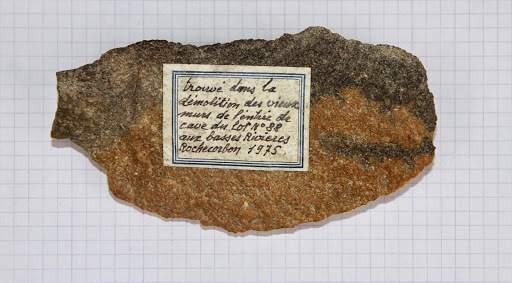 trouvé dans la
démolition des vieux
murs de l'entrée de
cave du lot N° 88
aux basses Rivières
Rochecorbon 1975